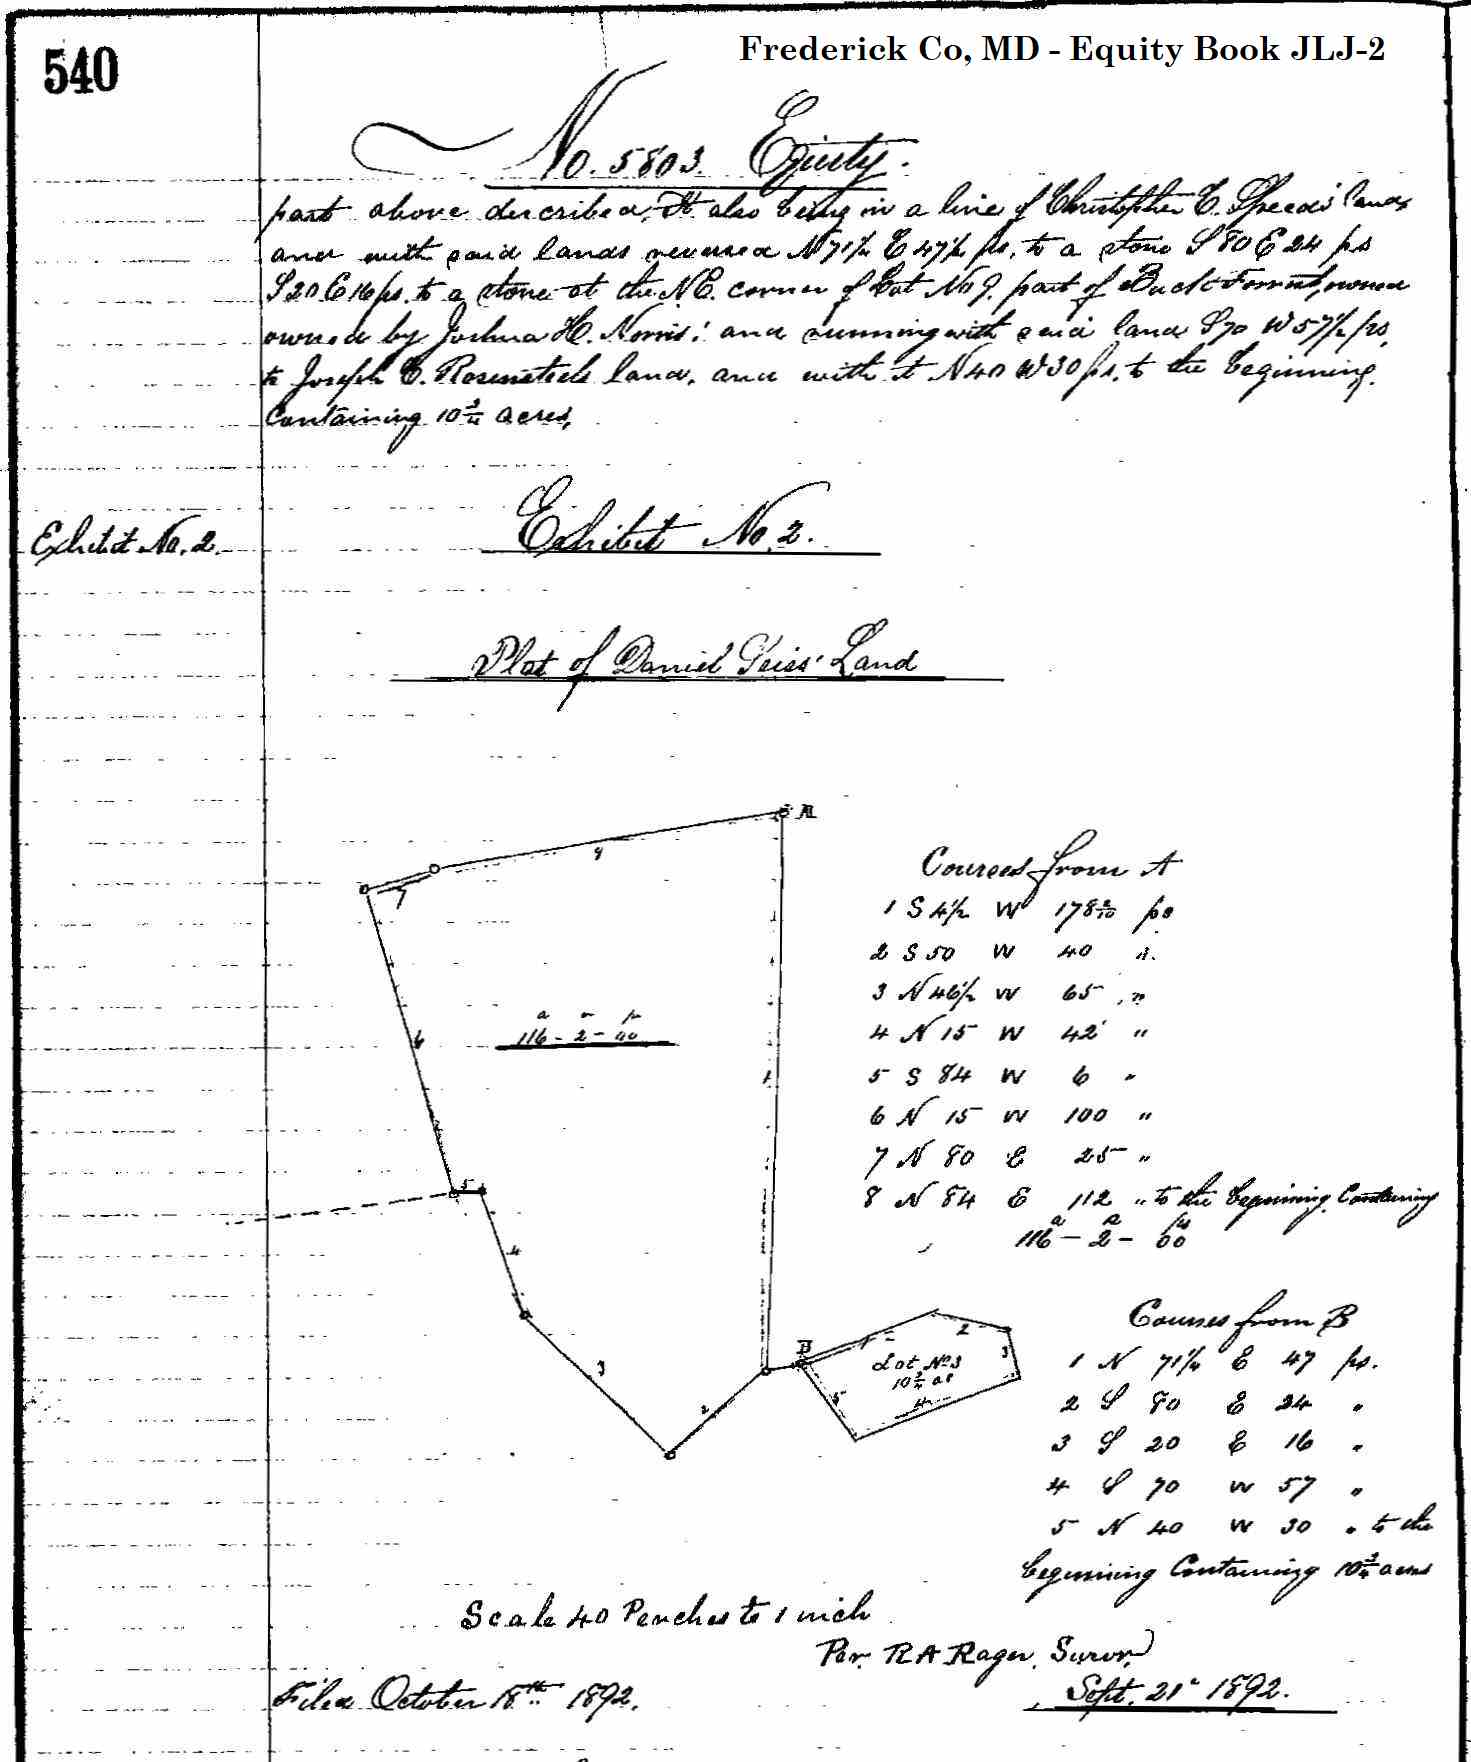 540
Frederick Co, MD - Equity Book JLJ-2
No. 5803. Equity.
part above described, It also being in a line of Christopher C. Speeds' lands
and with said lands reversed N 71½ E 47½ ps, to a stone S 80 E 24 ps
S 20 E 16 ps. to a stone at the N.E. corner of Lot No 9. part of Buck Forrest, owned
owned by Joshua H. Norris; and running with said land S 70 W 57½ ps,
to Joseph C. Rosensteels land, and with it N 40 W 30 ps, to the beginning.
Containing 10 3/4 acres,
Exhibit No. 2.
Exhibit No. 2.
Plat of Daniel Geiss' Land
A
8
7
6
a r p
116 - 2 - 00
1
5
4
3
2
B
1
2
3
Lot No 3
10 3/4 as
5
4
Courses from A
1 S 4½ W 178 2/10 ps
2 S 50 W 40 ".
3 N 46½ W 65 "
4 N 15 W 42 "
5 S 84 W 6 "
6 N 15 W 100 "
7 N 80 E 25 "
8 N 84 E 112 " to the beginning. Containing
a r p
116 - 2 - 00
Courses from B
1 N 71¼ E 47 ps.
2 S 80 E 24 "
3 S 20 E 16 "
4 S 70 W 57 "
5 N 40 W 30 " to the
beginning Containing 10 3/4 acres
Scale 40 Perches to 1 inch
Per. R A Rager, Survr.
Sept. 21st 1892.
Filed October 18th 1892.